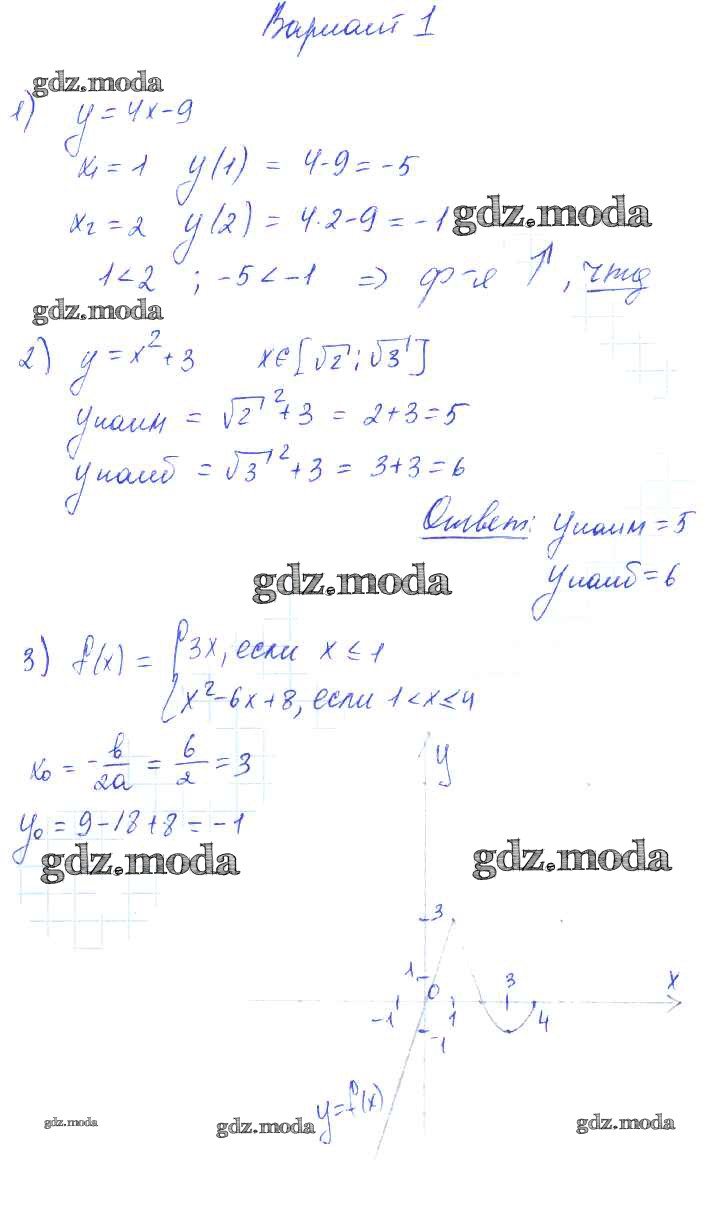 Вариант 1
gdz.moda
1) y = 4x - 9
x₁ = 1 y(1) = 4 - 9 = -5
x₂ = 2 y(2) = 4·2 - 9 = -1
gdz.moda
1 < 2 ; -5 < -1 => ф-я ↑, чтд
gdz.moda
2) y = x² + 3 x ∈ [√2; √3]
yнаим = √2² + 3 = 2 + 3 = 5
yнаиб = √3² + 3 = 3 + 3 = 6
Ответ: yнаим = 5
yнаиб = 6
gdz.moda
3) f(x) = { 3x, если x ≤ 1
x² - 6x + 8, если 1 < x ≤ 4
x₀ = -b/2a = 6/2 = 3
y₀ = 9 - 18 + 8 = -1
gdz.moda
gdz.moda
y
3
1
0
3
x
-1
1
4
-1
y = f(x)
gdz.moda
gdz.moda
gdz.moda